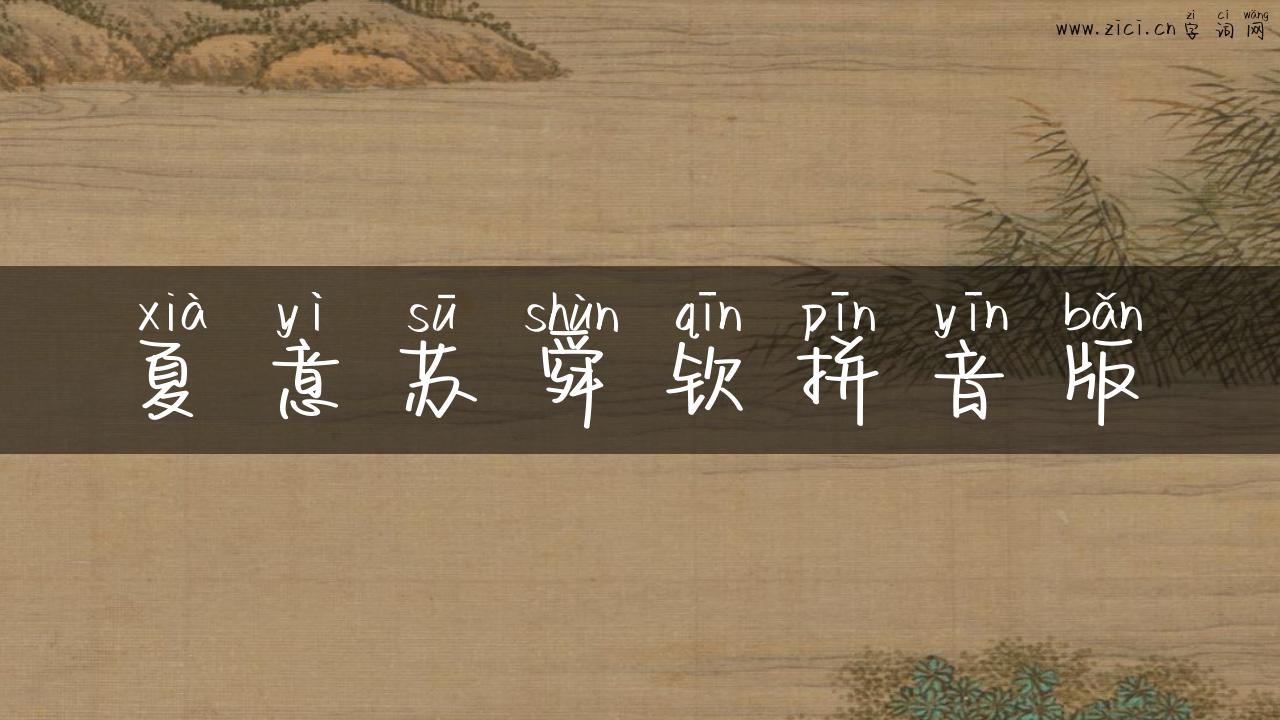 zì cí wǎng
www.zici.cn 字 词 网
xià yì sū shùn qīn pīn yīn bǎn
夏 意 苏 舜 钦 拼 音 版